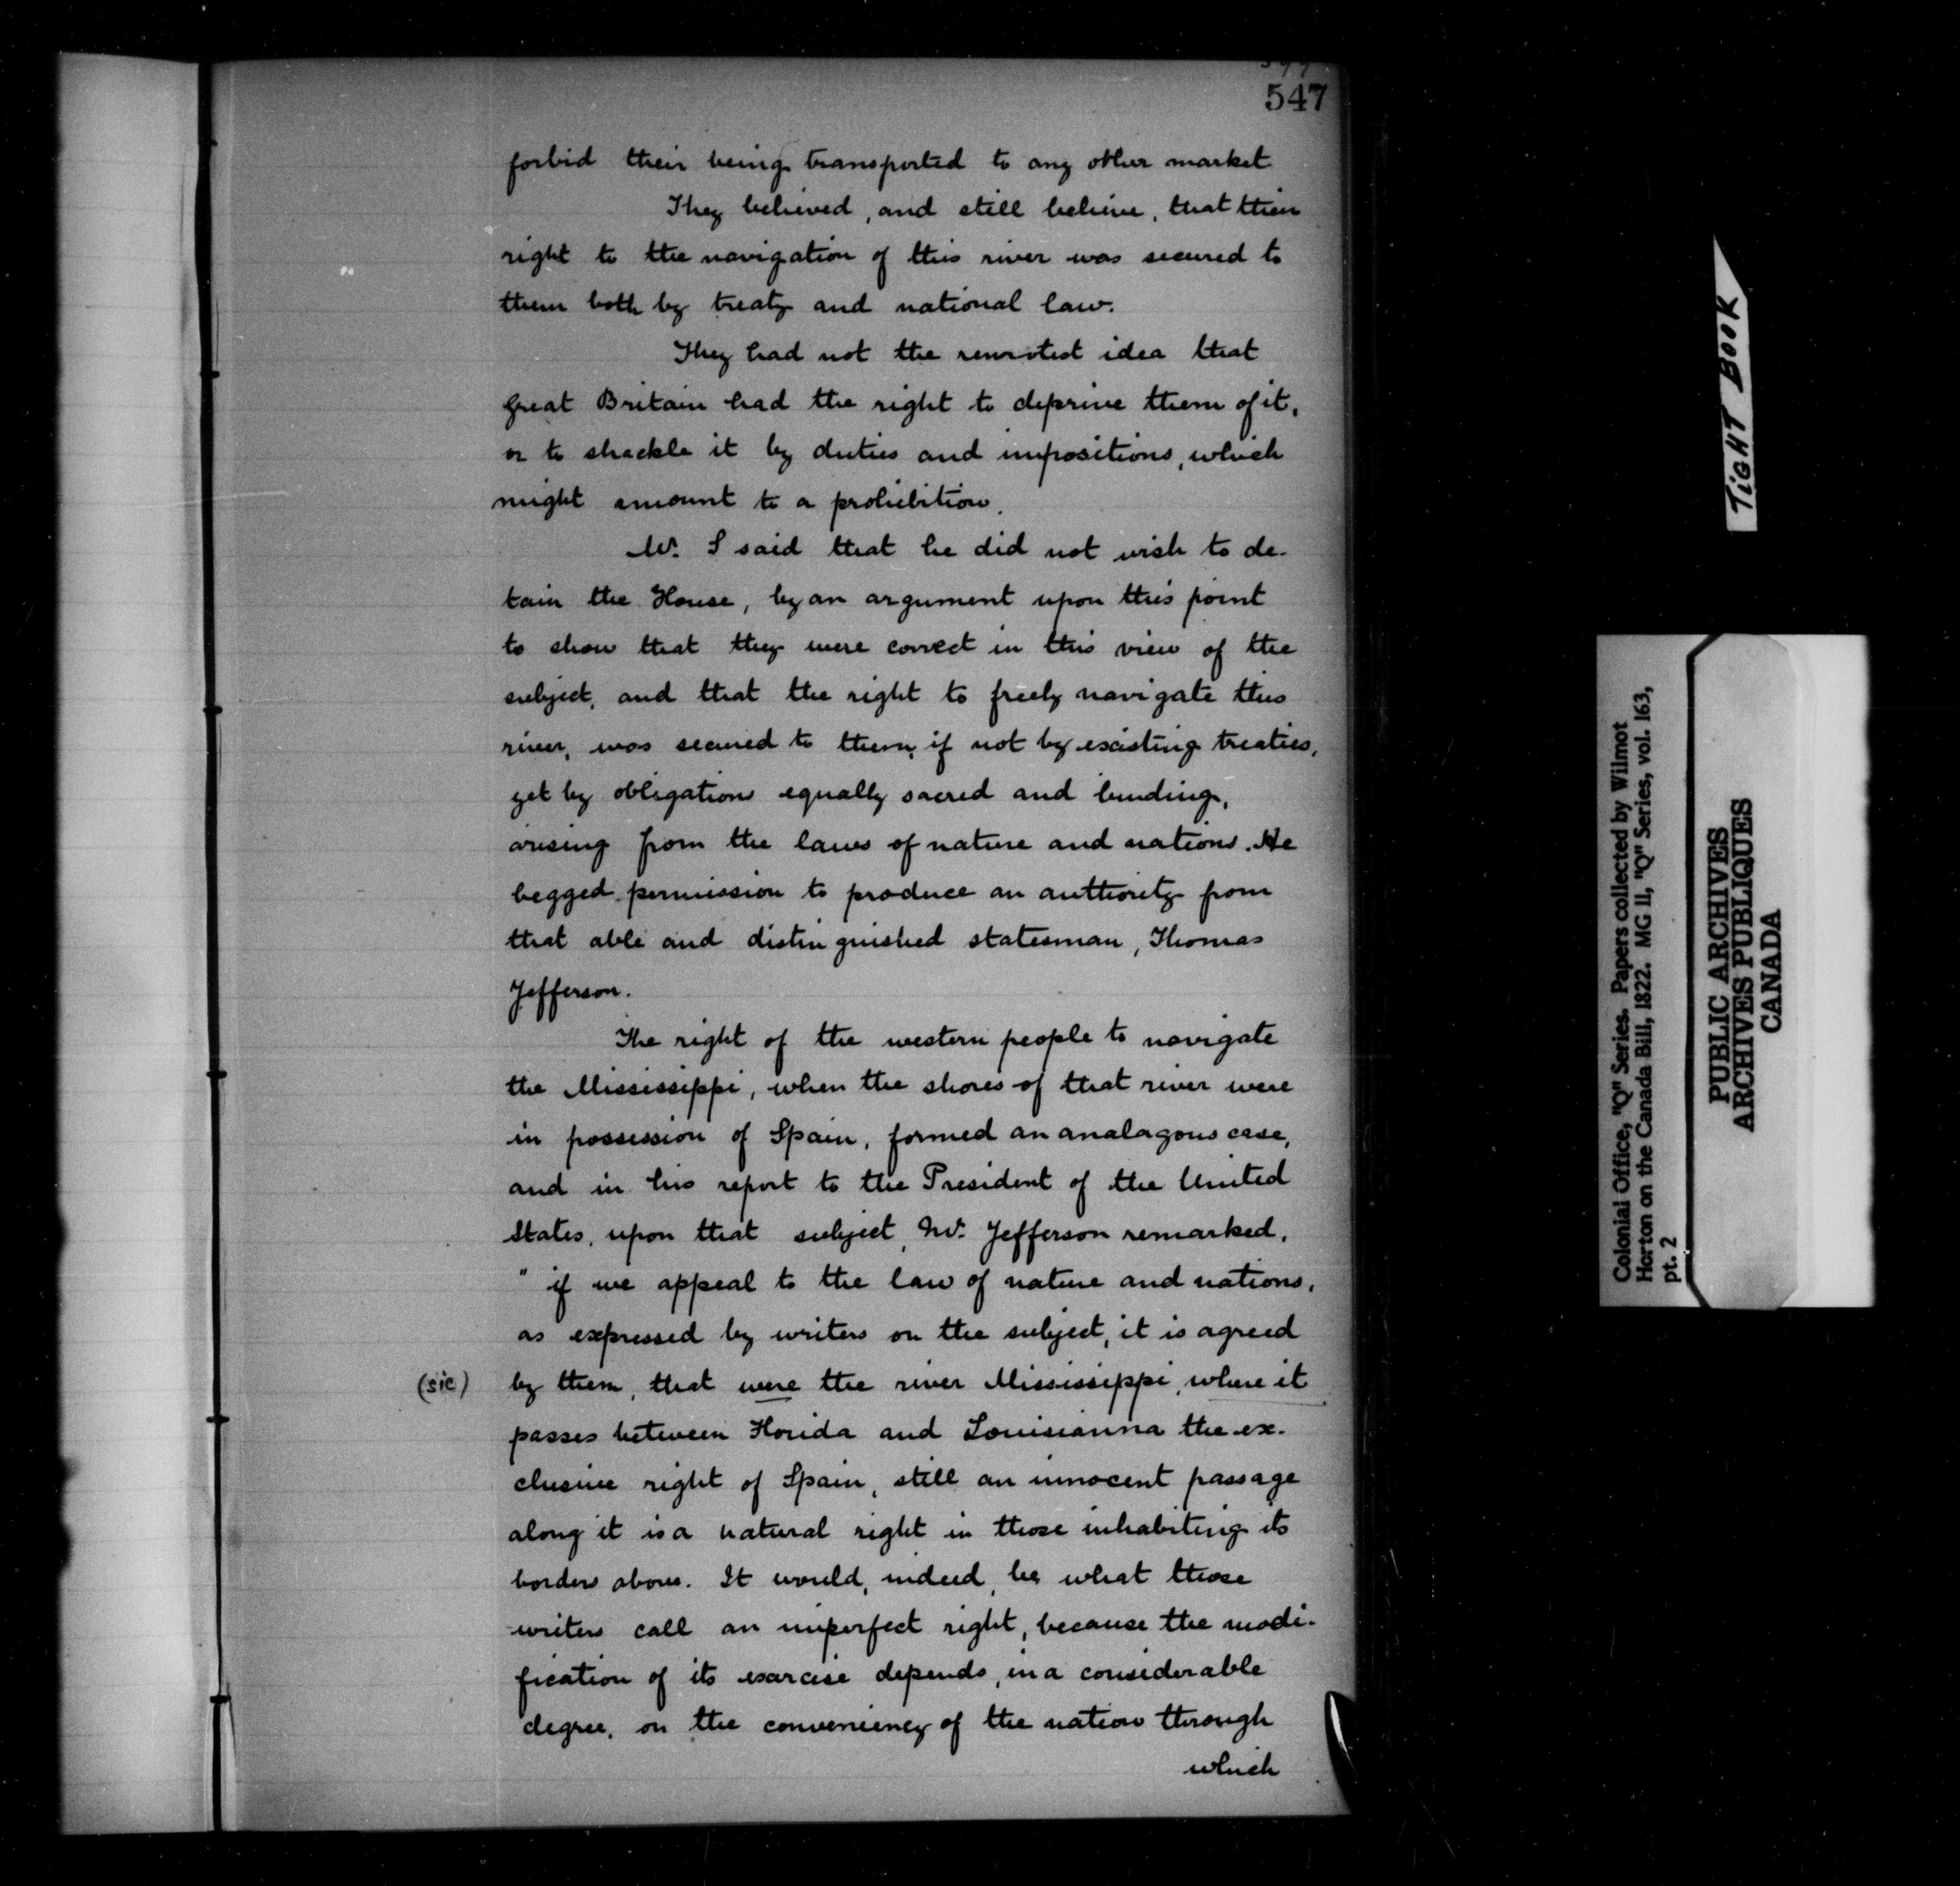 547
forbid their being transported to any other market
They believed, and still believe, that their
right to the navigation of this river was secured to
them both by treaty and national law.
They had not the remotest idea that
Great Britain had the right to deprive them of it,
or to shackle it by duties and impositions, which
might amount to a prohibition.
Mr. S said that he did not wish to de-
tain the House, by an argument upon this point
to show that they were correct in this view of the
subject, and that the right to freely navigate this
river, was secured to them, if not by existing treaties,
yet by obligations equally sacred and binding,
arising from the laws of nature and nations. He
begged permission to produce an authority from
that able and distinguished statesman, Thomas
Jefferson.
The right of the western people to navigate
the Mississippi, when the shores of that river were
in possession of Spain, formed an analagous case,
and in his report to the President of the United
States, upon that subject, Mr. Jefferson remarked,
" if we appeal to the law of nature and nations,
as expressed by writers on the subject, it is agreed
(sic) by them, that were the river Mississippi, where it
passes between Florida and Louisianna the ex-
clusive right of Spain, still an innocent passage
along it is a natural right in those inhabiting its
borders above. It would, indeed, be what those
writers call an imperfect right, because the modi-
fication of its exercise depends, in a considerable
degree, on the conveniency of the nation through
which
TIGHT BOOK
Colonial Office, "Q" Series. Papers collected by Wilmot
Horton on the Canada Bill, 1822. MG 11, "Q" Series, vol. 163,
pt. 2
PUBLIC ARCHIVES
ARCHIVES PUBLIQUES
CANADA